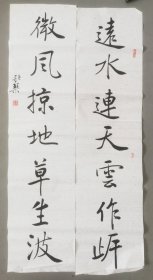 遠水連天雲作岸
微風掠地草生波